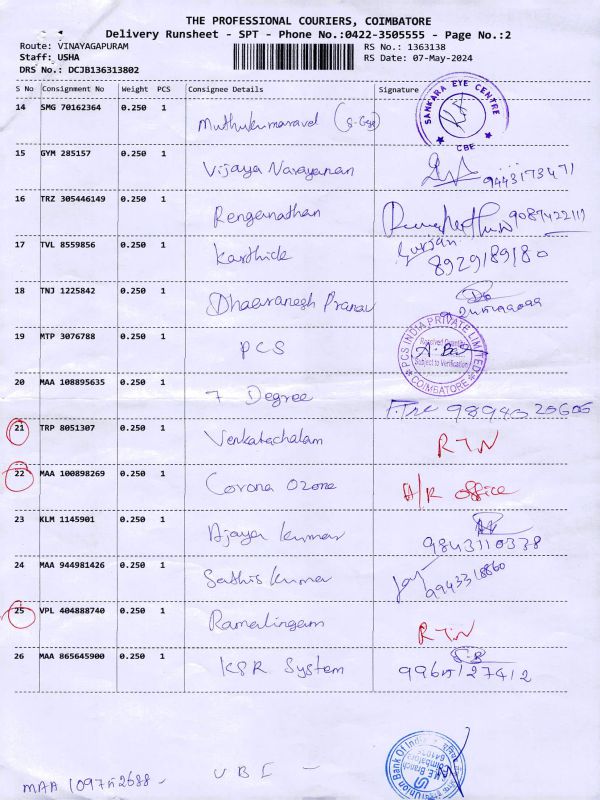 THE PROFESSIONAL COURIERS, COIMBATORE
Delivery Runsheet - SPT - Phone No.:0422-3505555 - Page No.:2
Route: VINAYAGAPURAM RS No.: 1363138
Staff: USHA RS Date: 07-May-2024
DRS No.: DCJB136313802
S No Consignment No Weight PCS Consignee Details Signature
14 SMG 70162364 0.250 1 Muthukumaravel SANKARA EYE CENTRE CBE
15 GYM 285157 0.250 1 Vijaya Narayanan 9443173471
16 TRZ 305446149 0.250 1 Renganathan 9087422119
17 TVL 8559856 0.250 1 Karthick 8929189180
18 TNJ 1225842 0.250 1 Pranav
19 MTP 3076788 0.250 1 PCS PCS INDIA PRIVATE LIMITED Subject to Verification COIMBATORE
20 MAA 108895635 0.250 1 7 Degree
21 TRP 8051307 0.250 1 Venkatachalam RTN
22 MAA 100898269 0.250 1 Corona Ozone A/R office
23 KLM 1145901 0.250 1 Ajaya Kumar 9843110338
24 MAA 944981426 0.250 1 Sathis Kumar
25 VPL 404888740 0.250 1 Ramalingam RTN
26 MAA 865645900 0.250 1 KSR System
UBI - Union Bank Of India